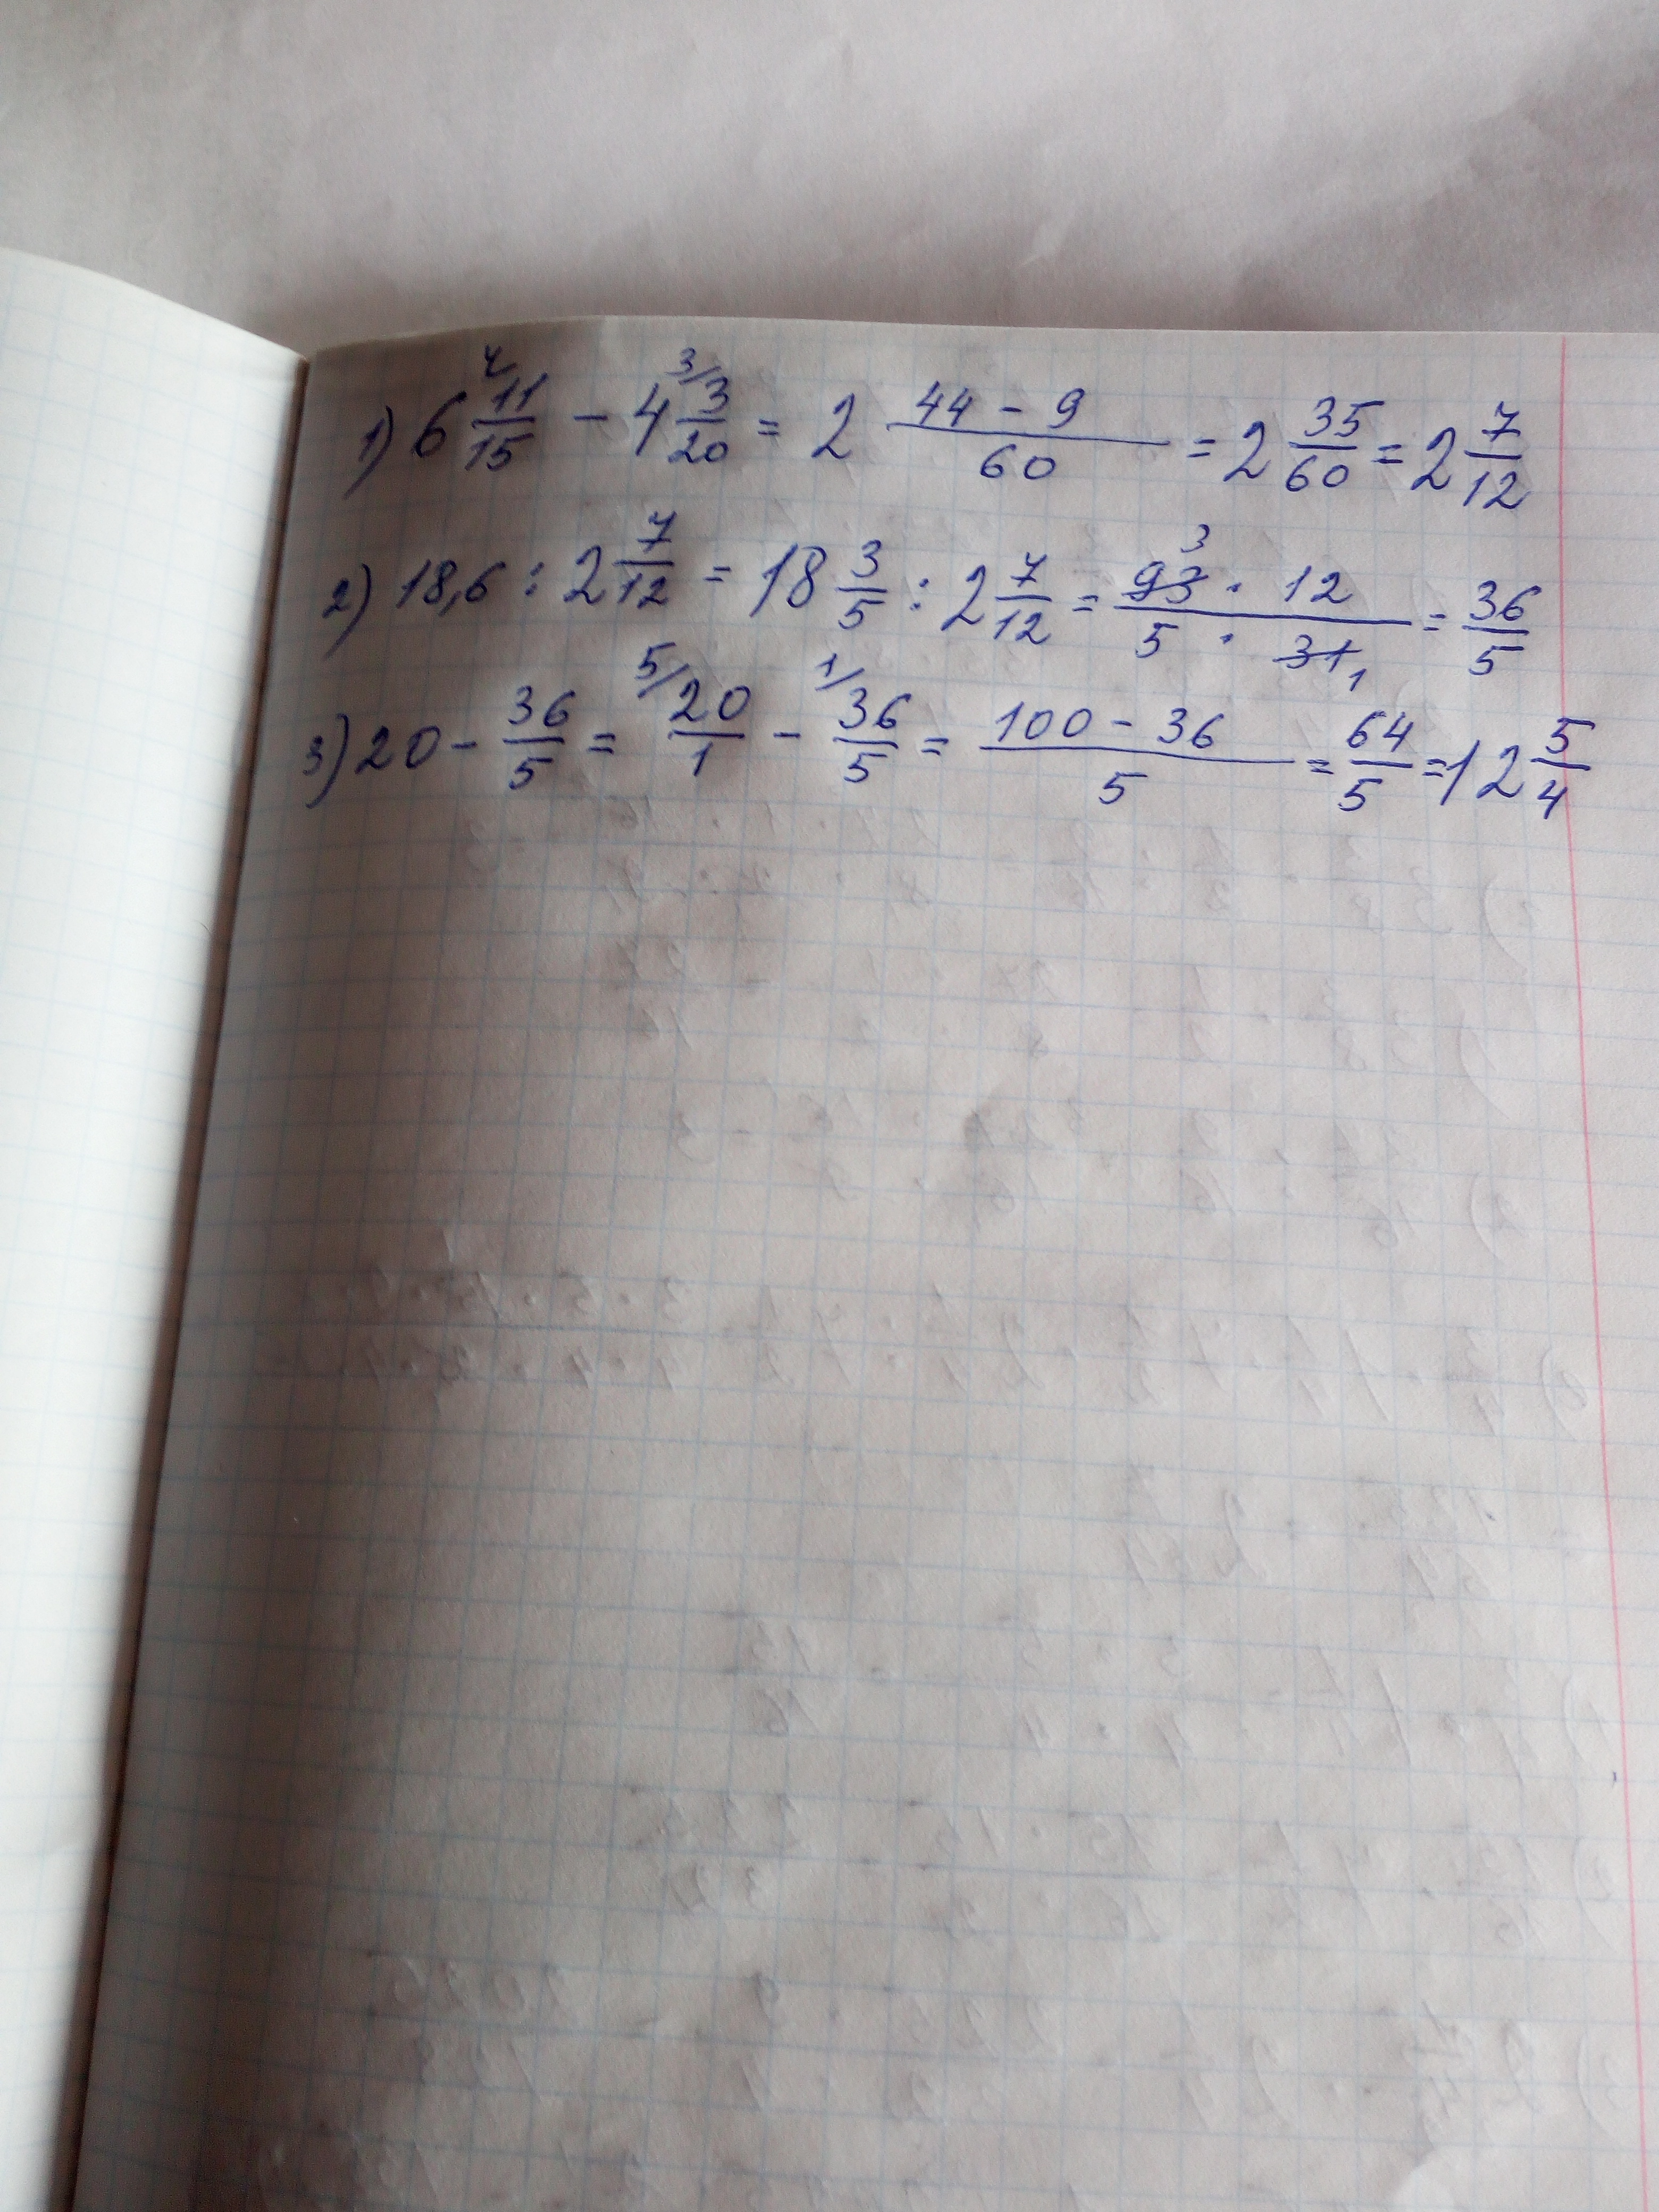 1) 6 4/11/15 - 4 3/3/20 = 2 44 - 9/60 = 2 35/60 = 2 7/12
2) 18,6 : 2 7/12 = 18 3/5 : 2 7/12 = 93 3 · 12/5 · 31 1 = 36/5
3) 20 - 36/5 = 5/20/1 - 1/36/5 = 100 - 36/5 = 64/5 = 12 5/4